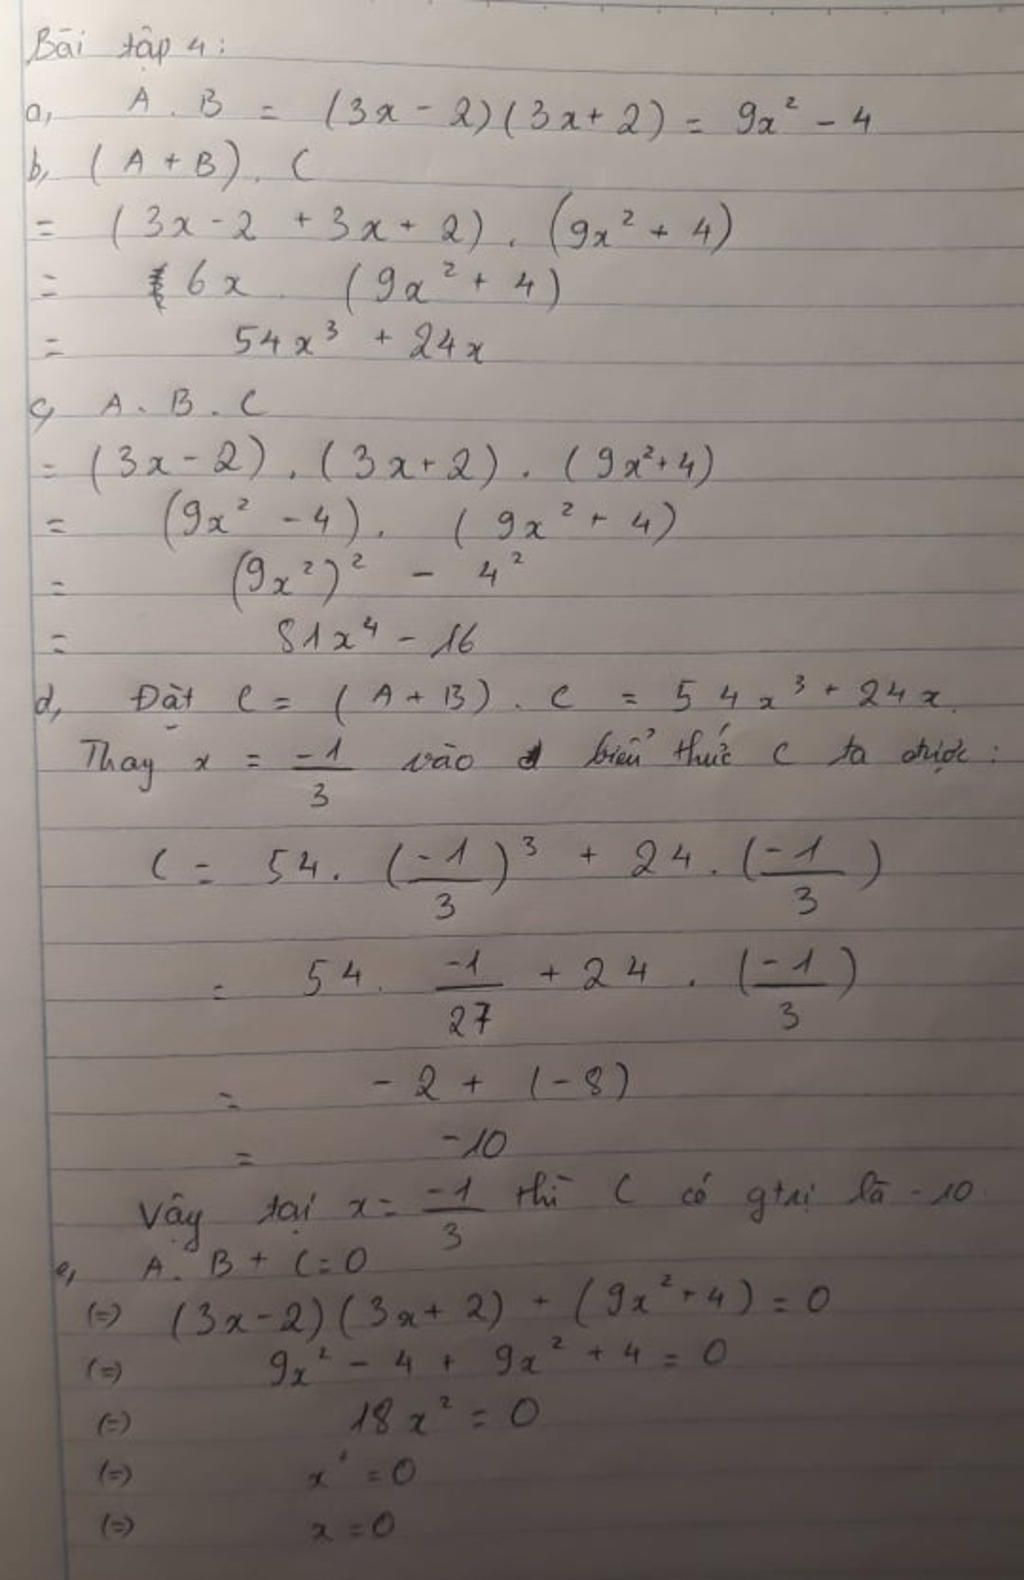 Bài tập 4:
a, A . B = (3x - 2)(3x + 2) = 9x² - 4
b, (A + B) . C
= (3x - 2 + 3x + 2) . (9x² + 4)
= 6x . (9x² + 4)
= 54x³ + 24x
c, A . B . C
= (3x - 2) . (3x + 2) . (9x² + 4)
= (9x² - 4) . (9x² + 4)
= (9x²)² - 4²
= 81x⁴ - 16
d, Đặt C = (A + B) . C = 54x³ + 24x
Thay x = -1/3 vào biểu thức C ta được:
C = 54 . (-1/3)³ + 24 . (-1/3)
= 54 . -1/27 + 24 . (-1/3)
= -2 + (-8)
= -10
Vậy tại x = -1/3 thì C có gtrị là -10
e, A . B + C = 0
(=) (3x - 2)(3x + 2) + (9x² + 4) = 0
(=) 9x² - 4 + 9x² + 4 = 0
(=) 18x² = 0
(=) x² = 0
(=) x = 0